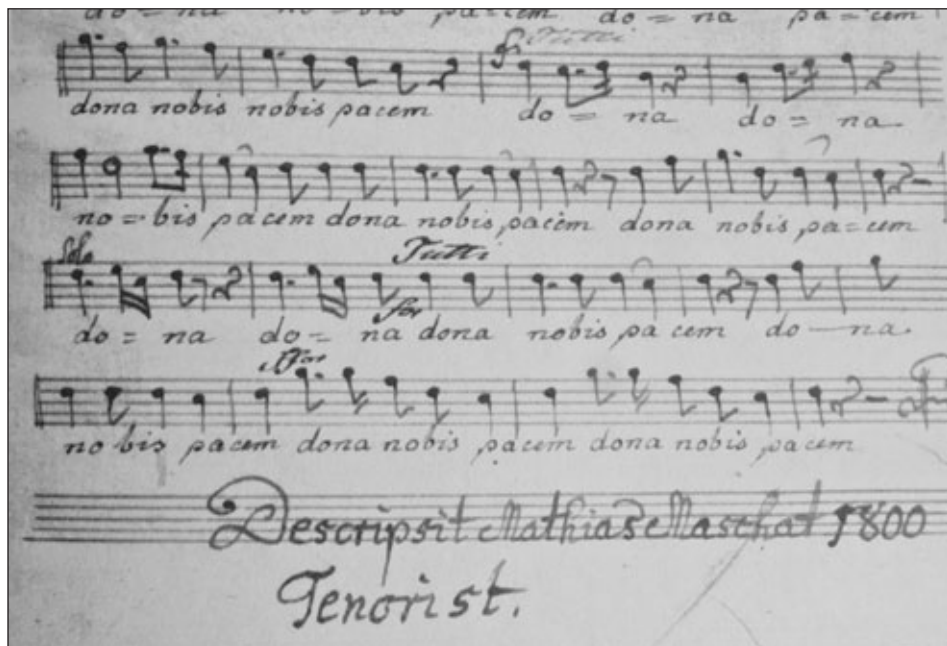 do = na no = bis pacem do = na pa = cem
Tutti
dona nobis nobis pacem do = na do = na
no = bis pacem dona nobis pacem dona nobis pa = cem
Solo Tutti
for
do = na do = na dona nobis pa cem do — na
no bis pacem dona nobis pacem dona nobis pacem
Descripsit Mathias Maschat 1800
Tenorist.